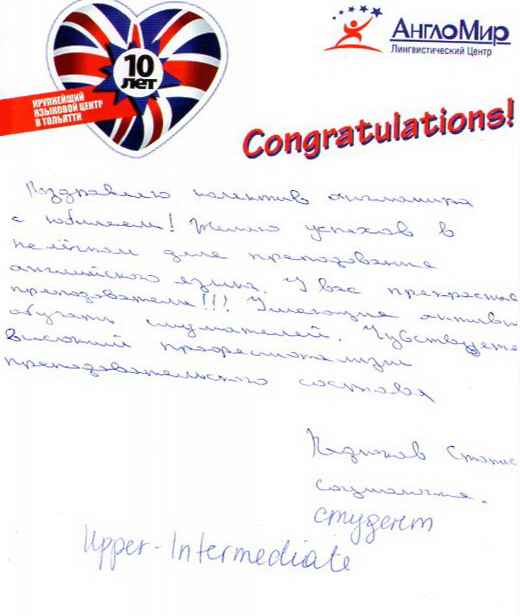 10
лет
КРУПНЕЙШИЙ
ЯЗЫКОВОЙ ЦЕНТР
В ТОЛЬЯТТИ
АнглоМир
Лингвистический Центр
Congratulations!
Поздравляю колектив Англомира
с юбилеем! Желаю успехов в
нелёгком деле преподование
английского языка. У вас прекрасные
преподаватели!!! Умеющие активно
обучать слушателей. Чувствуется
высокий професионализм
преподовательского состава
Стапис
студент
Upper-Intermediate